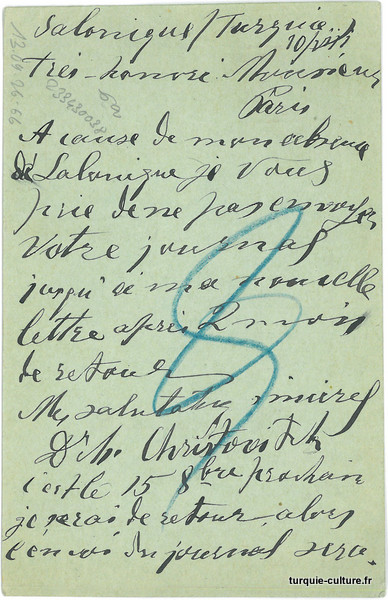 Salonique/Turquie
10/
très-honoré Monsieur
Paris
A cause de mon absence
de Salonique je Vous
prie de ne pas envoyer
Votre journal
jusqu'à ma nouvelle
lettre après 2 mois
de retour
Mes salutations sincères
Dr
c'est le 15 8bre prochain
je serai de retour, alors
l'envoi du journal sera.
turquie-culture.fr